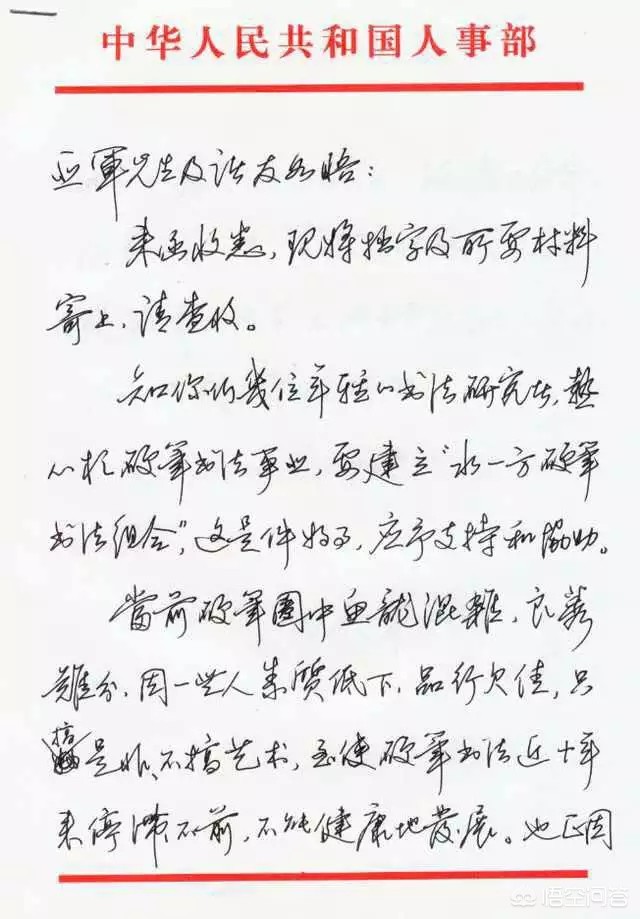 中华人民共和国人事部
亚軍先生及诸友如晤：
来函收悉，现将拙字及所要材料
寄上，请查收。
知你们幾位年轻的书法研究者，熱
心於硬筆书法事业，要建立“水一方硬筆
书法组合”，这是件好事，应予支持和協助。
當前硬筆圈中鱼龍混雜，良莠
難分，因一些人素質低下，品行欠佳，只
搞是非、不搞艺术，至使硬筆书法近十年
来停滞不前，不能健康地發展。也正因
悟空问答